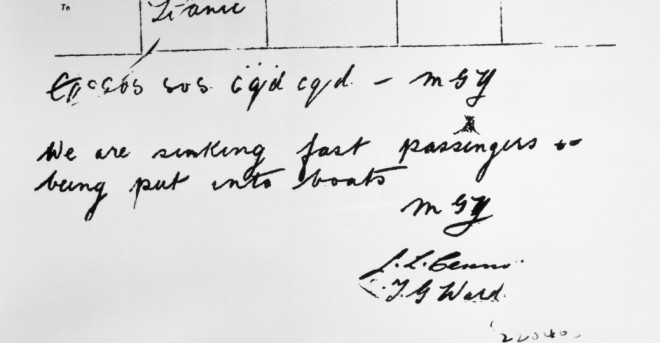 To
Titanic
SOS SOS cqd cqd - MGY
We are sinking fast passengers
being put into boats
MGY
T G Ward